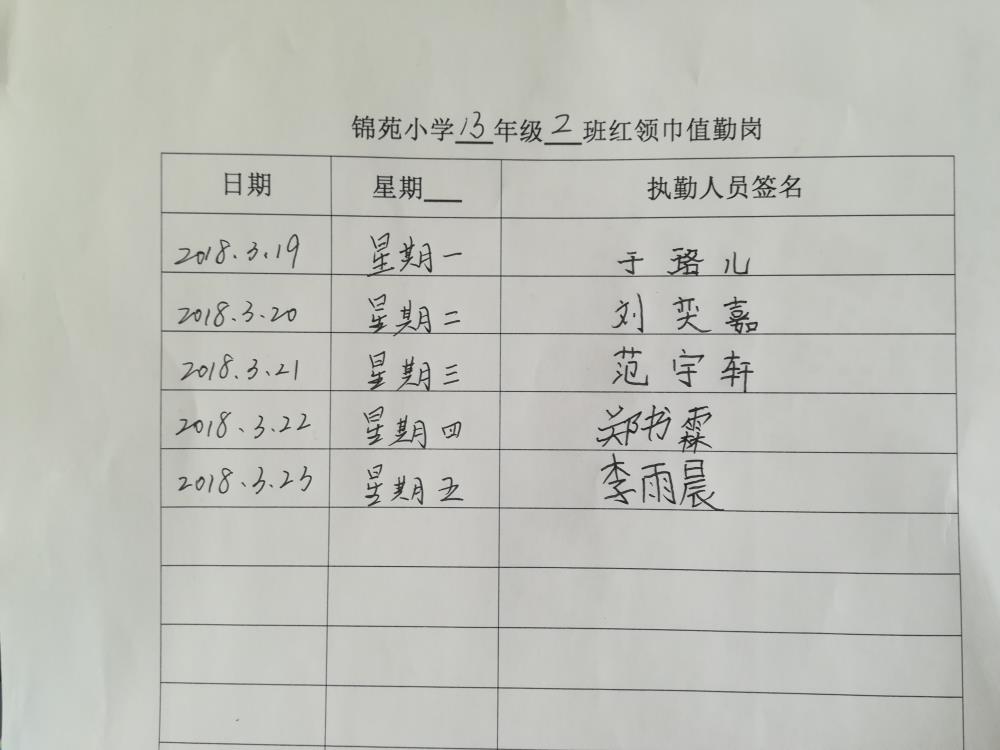 锦苑小学13年级2班红领巾值勤岗
日期 星期 执勤人员签名
2018.3.19 星期一 于璐儿
2018.3.20 星期二 刘奕嘉
2018.3.21 星期三 范宇轩
2018.3.22 星期四 郑书霖
2018.3.23 星期五 李雨晨